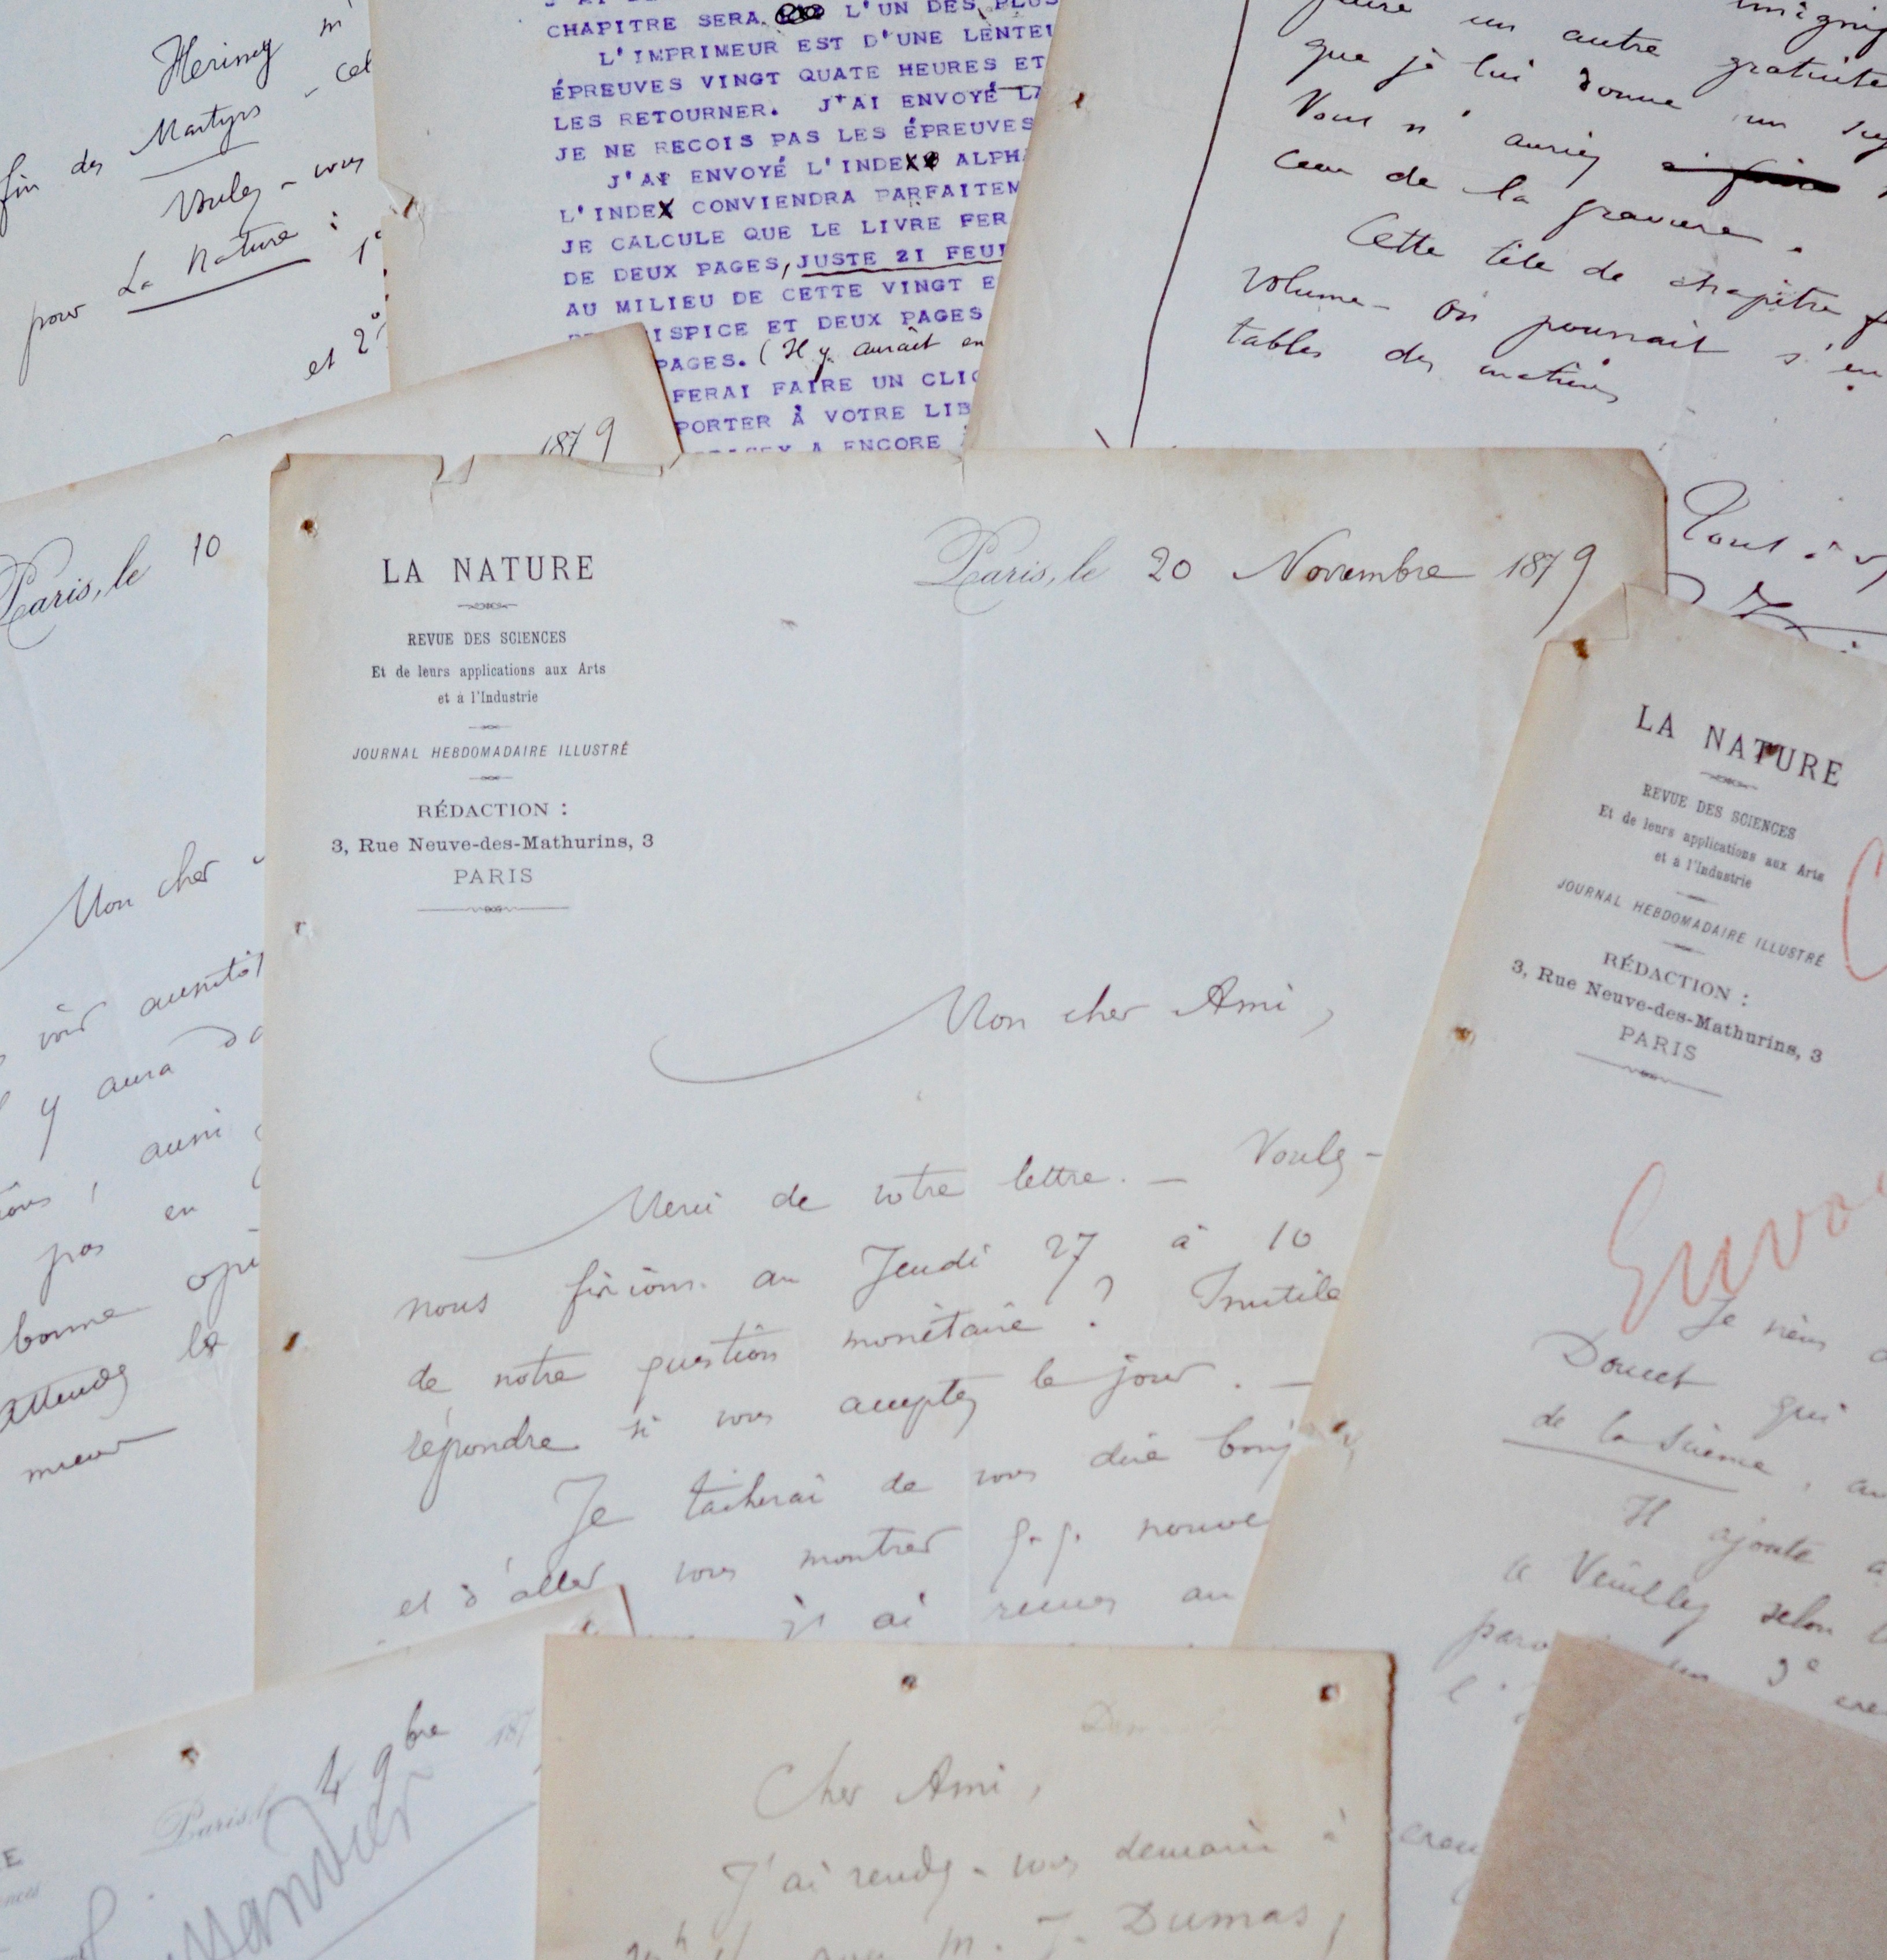 Hering m'
Martyrs - cet
fin des
Voulez-vous
pour La Nature :
1°
et 2°
CHAPITRE SERA L'UN DES PLUS
L'IMPRIMEUR EST D'UNE LENTEU
ÉPREUVES VINGT QUATE HEURES ET
LES RETOURNER. J'AI ENVOYÉ LA
JE NE RECOIS PAS LES ÉPREUVES
J'AI ENVOYÉ L'INDEX ALPHA
L'INDEX CONVIENDRA PARFAITEM
JE CALCULE QUE LE LIVRE FER
DE DEUX PAGES, JUSTE 21 FEUI
AU MILIEU DE CETTE VINGT E
ISPICE ET DEUX PAGES
PAGES. (Il y aurait en
FERAI FAIRE UN CLIC
PORTER À VOTRE LIB
A ENCORE
faire un autre gratuite
que je lui donne un suj
Vous n'auriez
ceux de la gravure.
Cette tête de chapitre f
volume - on pourrait s'en
tables des matières
Tout à v
1879
Paris, le 10
Mon cher
voir aussitôt
y aura
aussi
pas en
bonne opi
attendez le
mieux
LA NATURE
REVUE DES SCIENCES
Et de leurs applications aux Arts
et à l'Industrie
JOURNAL HEBDOMADAIRE ILLUSTRÉ
RÉDACTION :
3, Rue Neuve-des-Mathurins, 3
PARIS
Paris, le 20 Novembre 1879
Mon cher Ami,
Merci de votre lettre. — Voulez-
nous fixions au Jeudi 27 à 10
de notre question monétaire ? Inutile
répondre si vous acceptez le jour. —
Je tacherai de vous dire bonj
et d'aller vous montrer q.q. nouve
ai reçues au
LA NATURE
REVUE DES SCIENCES
Et de leurs applications aux Arts
et à l'Industrie
JOURNAL HEBDOMADAIRE ILLUSTRÉ
RÉDACTION :
3, Rue Neuve-des-Mathurins, 3
PARIS
Envo
Je viens d
Doucet qui
de la Science, au
Il ajoute a
a Veuillez selon l
Paris, le 4 9bre 187
Cher Ami,
J'ai rendez-vous demain à
M. J. Dumas,